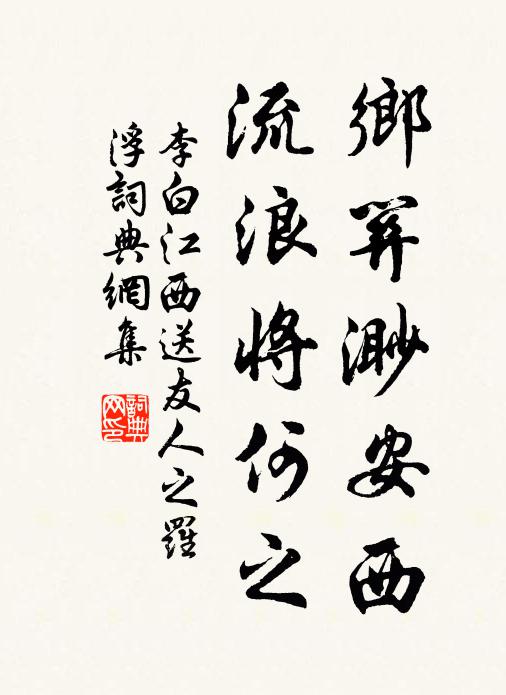 鄉關渺安西
流浪將何之
李白江西送友人之羅
浮詞典網集
詞典
网印